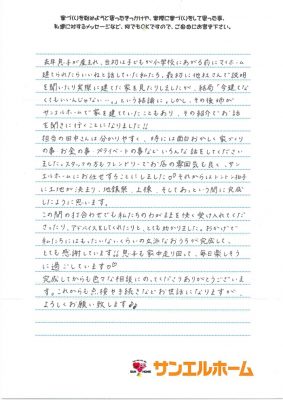 家づくりを始めようと思ったきっかけや、実際に家づくりをして思った事、
私達に対するメッセージなど、何でもOKですので、ご自由にお書き下さい。
長年息子が産まれ、当初は子どもが小学校にあがる前にマイホーム
建てられたらいいねと話していた私たち。最初に他社さんで説明
を聞いたり実際に建てた家を見たりしましたが、結局「今建てなく
てもいいんじゃない…。」という結論に。しかし、その後姉が
サンエルホームで家を建てていたこともあり、その紹介でお話
を聞きに行くことになりました!!
担当の田中さんは分かりやすく、時には面白おかしく家づくり
の事・お金の事・プライベートの事などいろんな話をしてください
ました。スタッフの方もフレンドリーでお店の雰囲気も良く、サン
エルホームにお任せすることにしました。それからはトントン拍子
に土地が決まり、地鎮祭、上棟、そしてあっという間に完成
したように思います。
この間の打合わせでも私たちのわがままを快く受け入れてくだ
さったり、アドバイスをしてくれたりと、とても助かりました。おかげで
私たちにはもったいないくらいの立派なおうちが完成して、
とても感謝しています!! 息子も家中走り回って、毎日楽しそう
に過ごしています♡
完成してからも色々な相談にのってくださりありがとうございま
す。これからも点検や手続きなどお世話になりますが
よろしくお願い致します♪
サンエルホーム